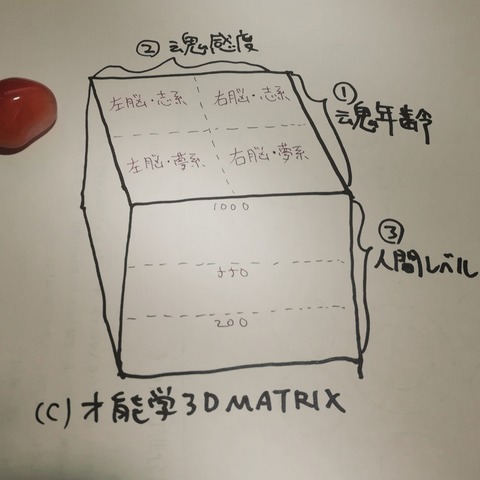 ② 魂感度
左脳・志系 右脳・志系
① 魂年齢
左脳・夢系 右脳・夢系
1000
③ 人間レベル
550
200
(C) 才能学3D MATRIX